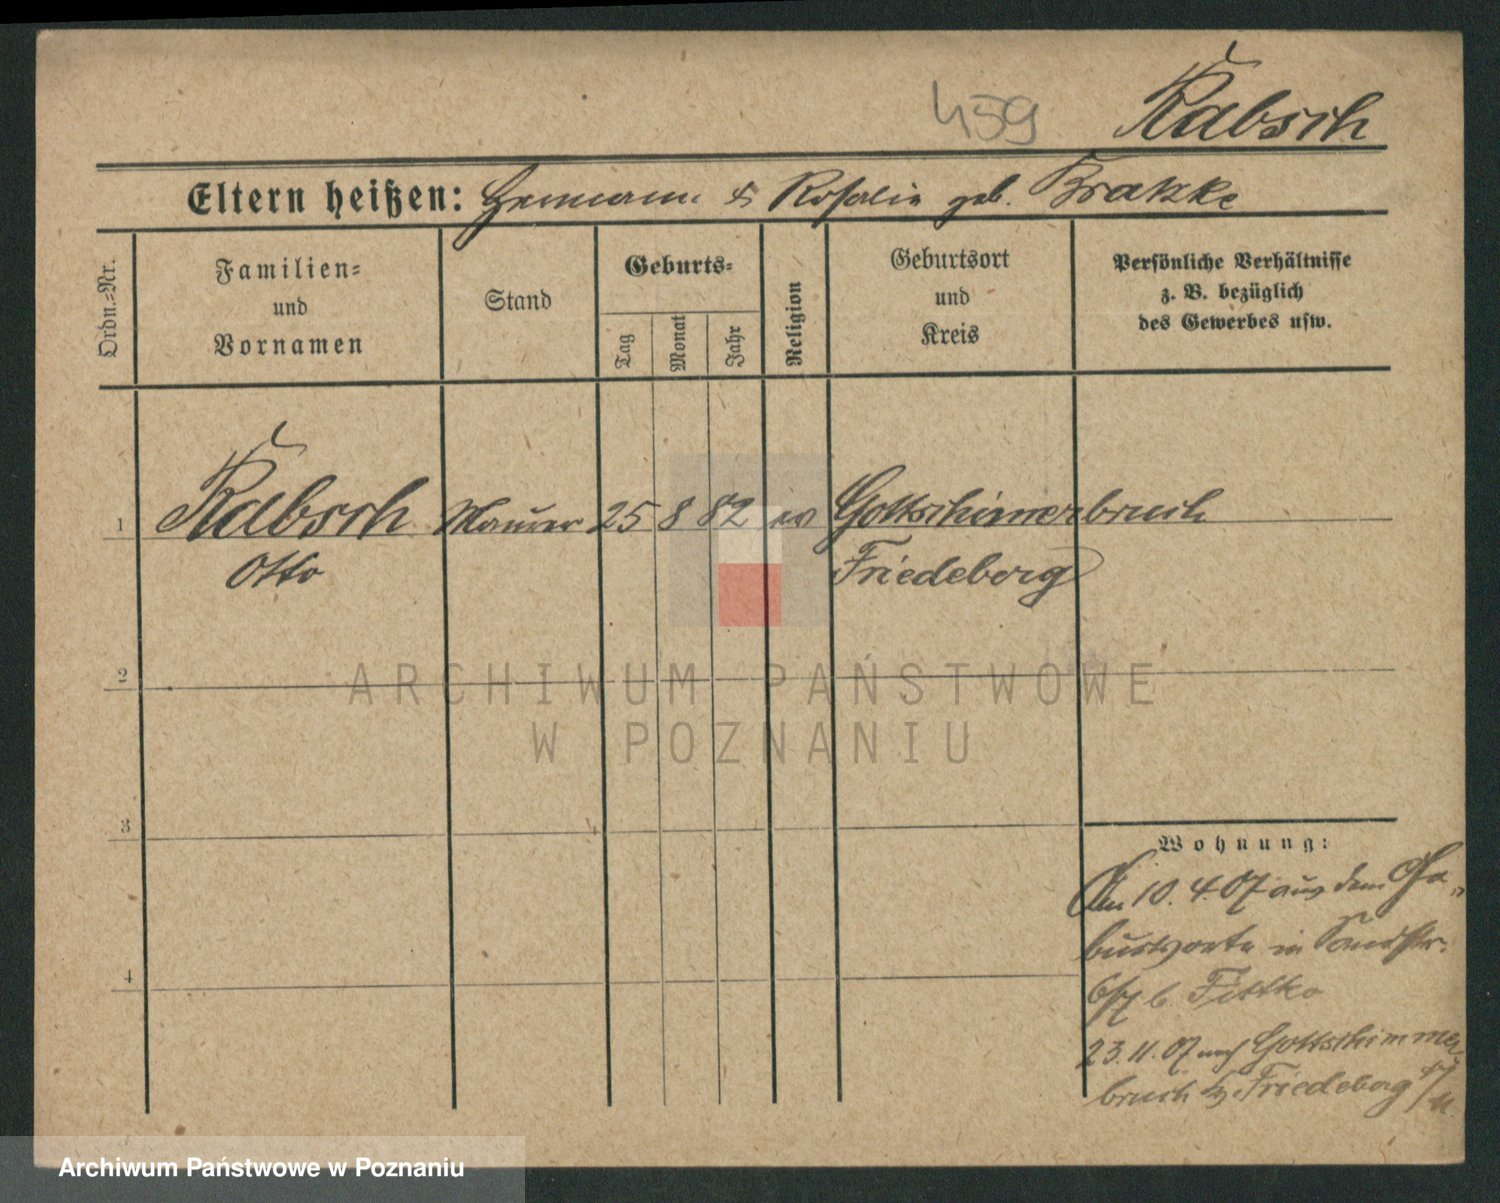 459 Rabsch
Eltern heißen: Hermann & Rosalie geb. Brakke
Ordn.-Nr.
Familien-
und
Vornamen
Stand
Geburts-
Tag
Monat
Jahr
Religion
Geburtsort
und
Kreis
Persönliche Verhältnisse
z. B. bezüglich
des Gewerbes usw.
1 Rabsch Maurer 25 8 82 ev Gottschimmerbruch
Otto Friedeberg
2
3
4
Wohnung:
Am 10. 4. 07 aus dem
in Sandstr.
b. Fittko
23. 11. 07 nach Gottschimmer
bruch Kr. Friedeberg
ARCHIWUM PAŃSTWOWE
W POZNANIU
Archiwum Państwowe w Poznaniu